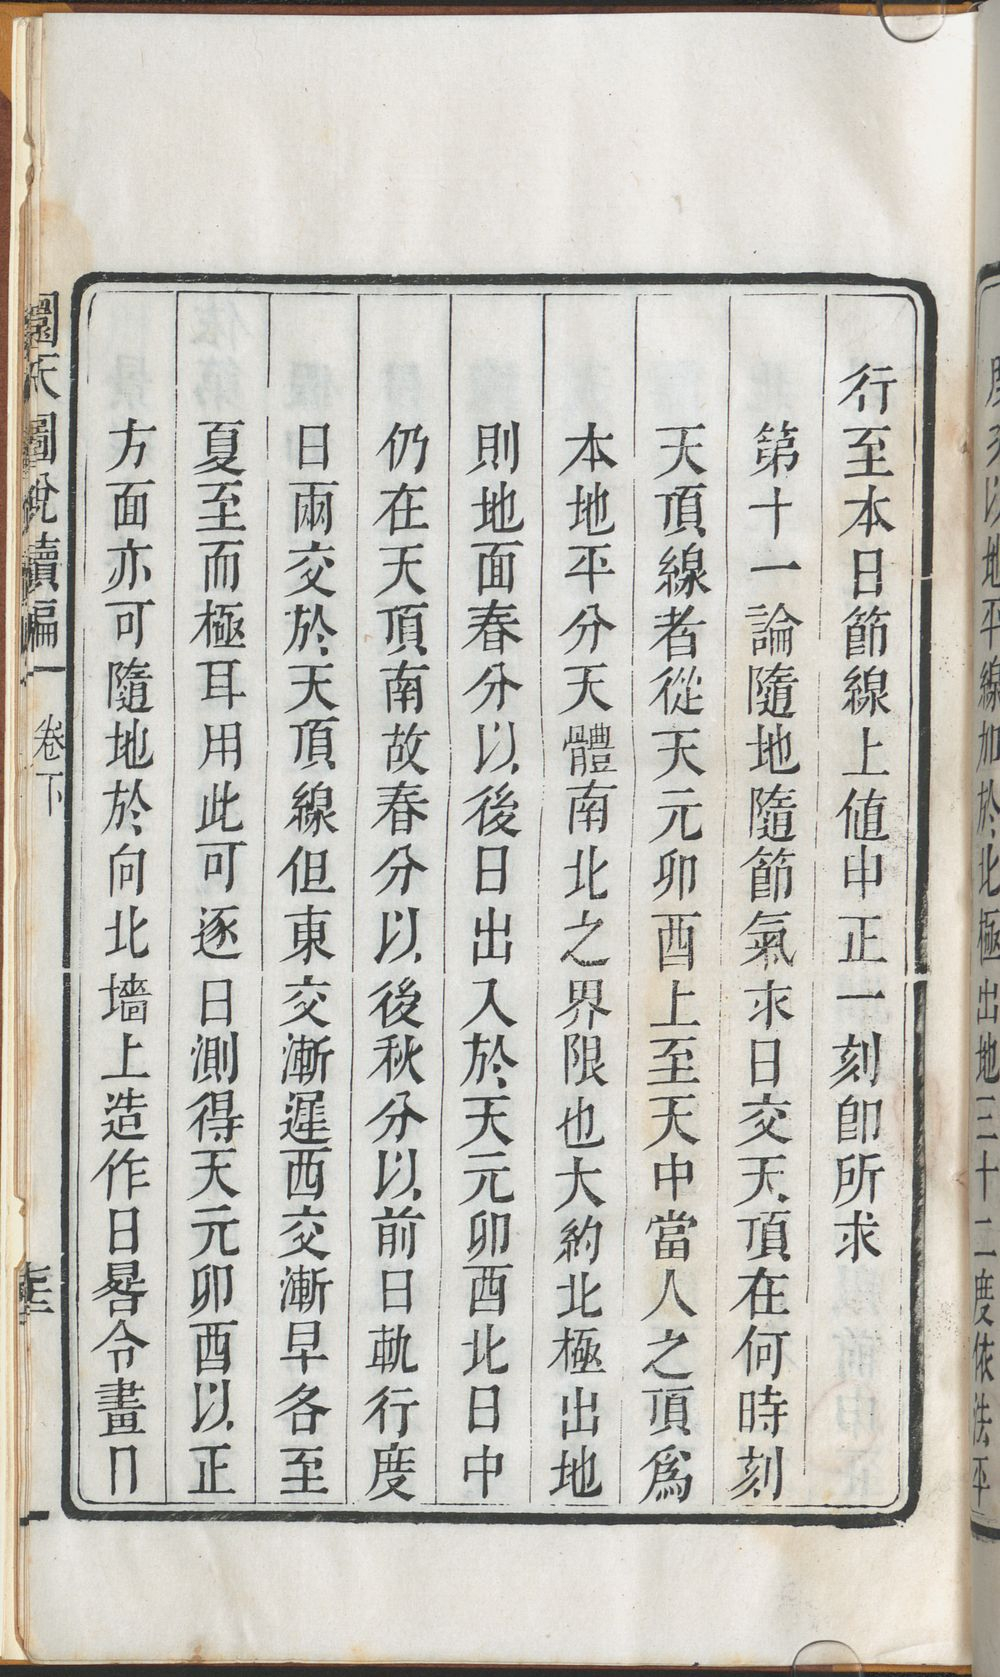 度來以地平線加於北極出地三十二度依法平
行至本日節線上値申正一刻卽所求
第十一論隨地隨節氣求日交天頂在何時刻
天頂線者從天元卯酉上至天中當人之頂爲
本地平分天體南北之界限也大約北極出地
則地面春分以後日出入於天元卯酉北日中
仍在天頂南故春分以後秋分以前日軌行度
日兩交於天頂線但東交漸遲西交漸早各至
夏至而極耳用此可逐日測得天元卯酉以正
方面亦可隨地於向北墻上造作日晷令晝日
圜天圖說續編 卷下